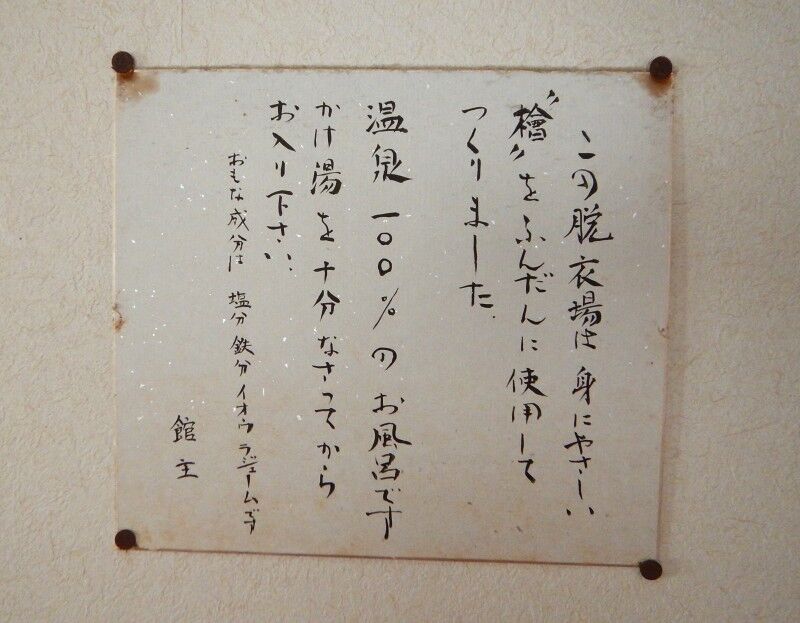 この脱衣場は身にやさしい
“檜”をふんだんに使用して
つくりました.
温泉一〇〇%のお風呂です
かけ湯を十分なさってから
お入り下さい.
おもな成分は 塩分 鉄分 イオウ ラジュームです
館主